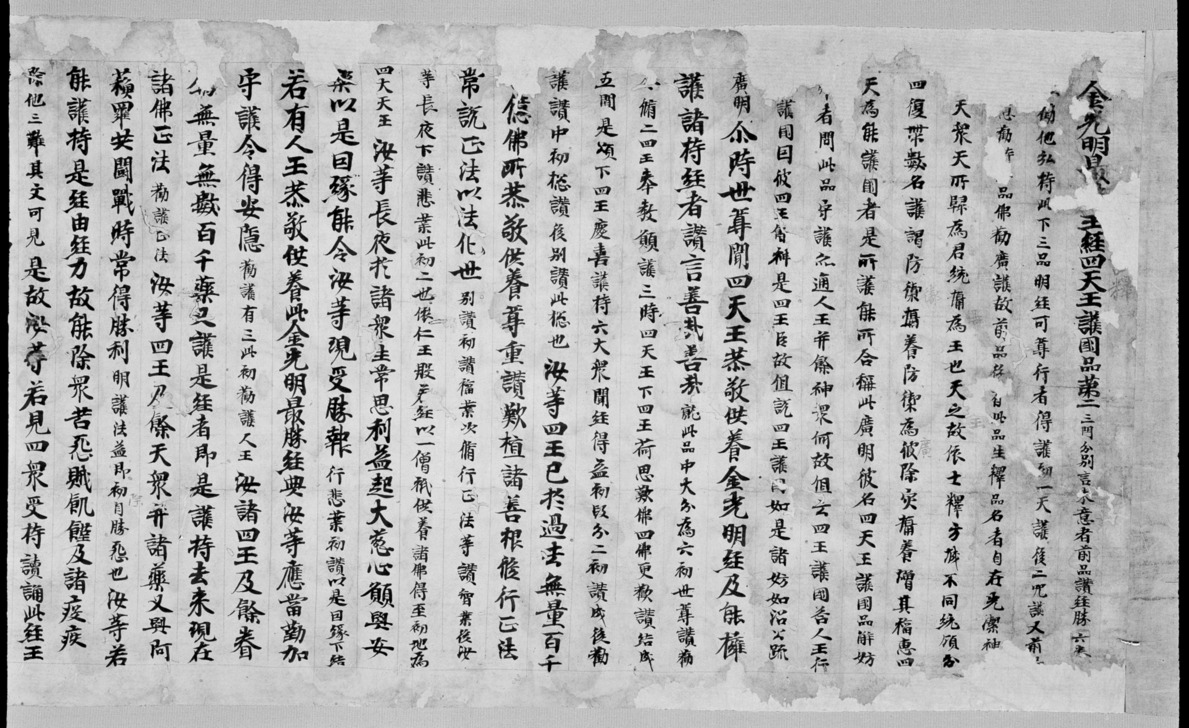 金光明最王經四天王護國品第二三門分別言來意者前品讚經勝六來
勸他弘持此下三品明經可尊行者得護初一天護後二咒護又前
品佛勸廣護故前品名自此品生釋品名者自在光潔神
天眾天所歸為君統攝為王也天之故依士釋方域不同統領分
四復帶數名護謂防禦攝養防禦為彼除災攝養增其福惠四
天為能護國者是所護能所合稱此廣明彼名四天王護國品解妨
者問此品守護亦通人王并餘神眾何故但云四王護國答人王行
護國因彼四王眷料是四王臣故但說四王護如是諸妨如沼公疏
廣明 尒時世尊聞四天王恭敬供養金光明經及能擁
護諸持經者讚言善哉善哉就此品中大分為六初世尊讚勸
脩二四王奉教願護三時四天王下四王荷恩歎佛四佛更歎讚結成
五聞是頌下四王慶喜護持六大眾聞經得益初段分二初讚成後勸
護讚中初惣讚後別讚此惣也 汝等四王已於過去無量百千
億佛所恭敬供養尊重讚歎植諸善根脩行正法
常說正法以法化世別讚初讚福業次脩行正法等讚智業後汝
等長夜下讚悲業此初二也依仁王般若經以一僧祇供養諸佛得至初地為
四大天王 汝等長夜於諸眾生常思利益起大慈心願與安
樂以是因緣能令汝等現受勝報行悲業初讚以是因緣下結
若有人王恭敬供養此金光明最勝經典汝等應當勤加
守護令得安隱勸護有三此初勸護人王 汝諸四王及餘眷
屬無量無數百千藥叉護是經者即是護持去來現在
諸佛正法勸護正法 汝等四王及餘天眾并諸藥叉與阿
蘇羅共鬪戰時常得勝利明護法益即初自勝怨也汝等若
能護持是經由經力故能除眾苦怨賊飢饉及諸疫疾
除他三難其文可見 是故汝等若見四眾受持讀誦此經王